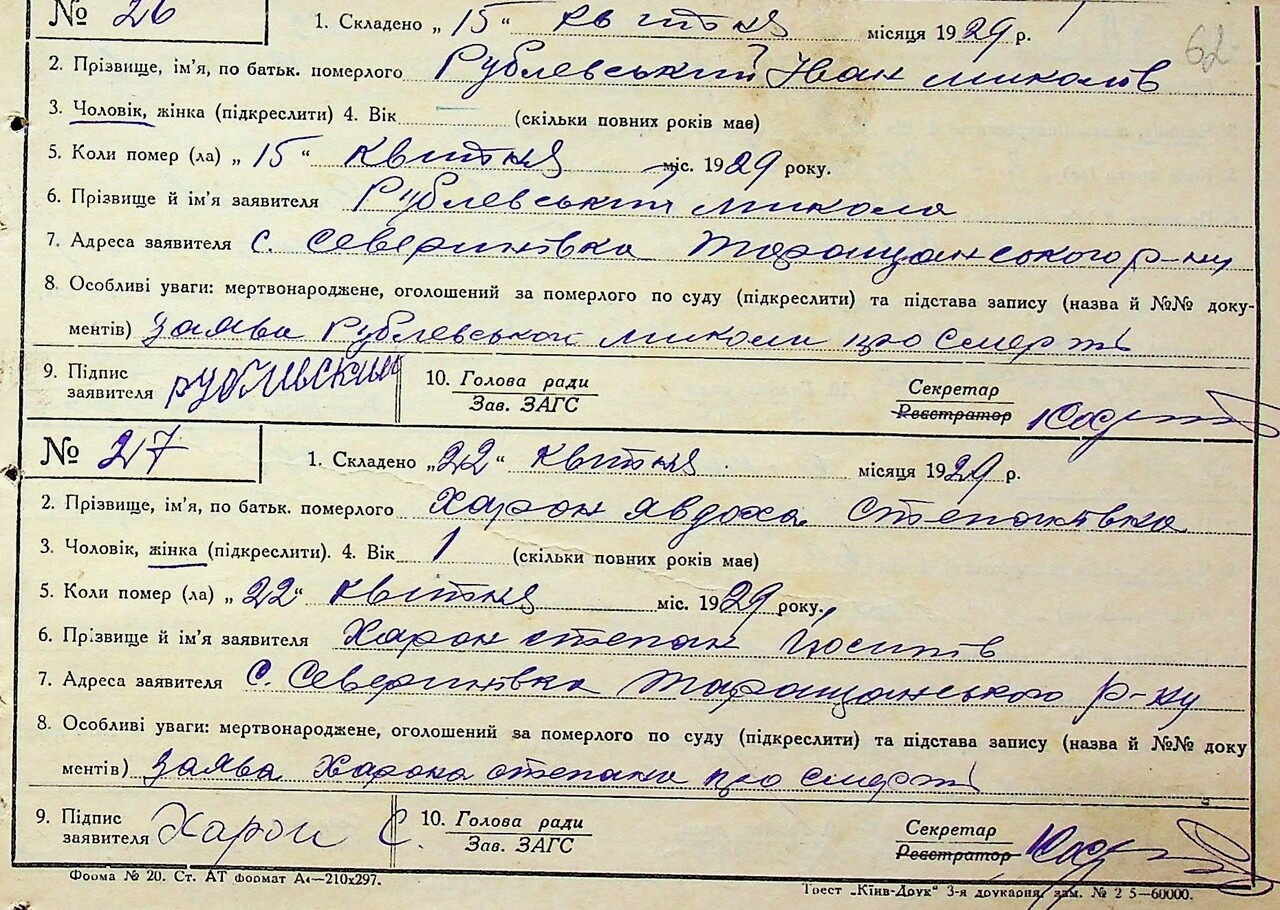 № 26 1. Складено „ 15 “ квітня місяця 1929 р.
62
2. Прізвище, ім’я, по батьк. померлого Рублевський Іван Миколів
3. Чоловік, жінка (підкреслити) 4. Вік — (скільки повних років має)
5. Коли помер (ла) „ 15 “ квітня міс. 1929 року.
6. Прізвище й ім’я заявителя Рублевський Микола
7. Адреса заявителя с. Северинівка Таращанського р-ну
8. Особливі уваги: мертвонароджене, оголошений за померлого по суду (підкреслити) та підстава запису (назва й №№ доку-
ментів) Заява Рублевської Миколи про смерть
9. Підпис заявителя Рублівский 10. Голова ради Зав. ЗАГС Секретар Реєстратор
№ 27 1. Складено „22“ квітня місяця 1929 р.
2. Прізвище, ім’я, по батьк. померлого Харон Явдоха Степанівна
3. Чоловік, жінка (підкреслити). 4. Вік 1 (скільки повних років має)
5. Коли помер (ла) „ 22“ квітня міс. 1929 року.
6. Прізвище й ім’я заявителя Харон Степан Йосипів
7. Адреса заявителя с. Северинівка Таращанського р-ну
8. Особливі уваги: мертвонароджене, оголошений за померлого по суду (підкреслити) та підстава запису (назва й №№ доку
ментів) Заява Харона Степана про смерть
9. Підпис заявителя Харон С. 10. Голова ради Зав. ЗАГС Секретар Реєстратор
Форма № 20. Ст. АТ Формат А4—210х297. Трест „Київ-Друк“ 3-я друкарня, зам. № 2 5—60000.